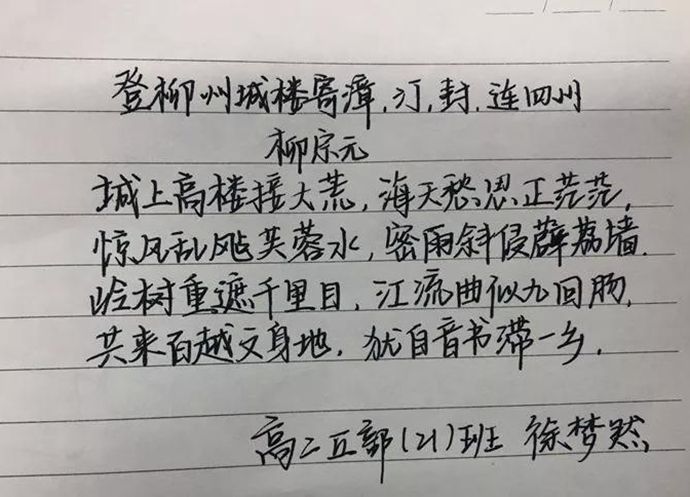 登柳州城楼寄漳.汀.封.连四州
柳宗元
城上高楼接大荒,海天愁思正茫茫,
惊风乱飐芙蓉水,密雨斜侵薜荔墙.
岭树重遮千里目,江流曲似九回肠,
共来百越文身地.犹自音书滞一乡.
高二五部(21)班 徐梦然